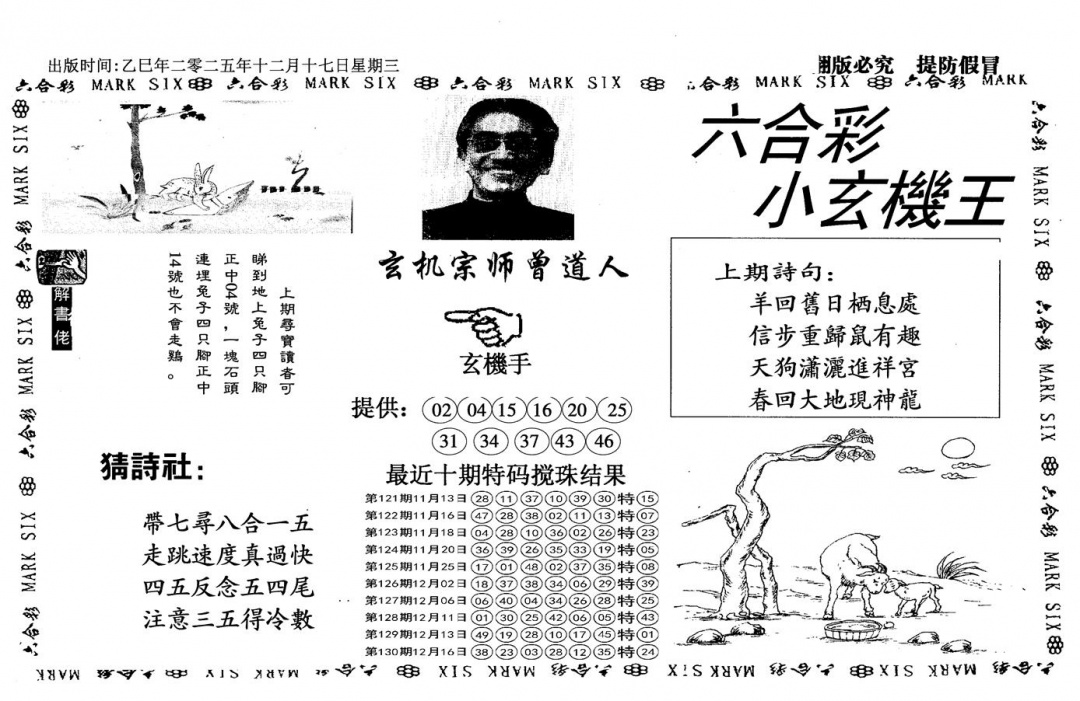 出版时间:乙巳年二零二五年十二月十七日星期三
版必究 提防假冒
六合彩 MARK SIX 六合彩 MARK SIX 六合彩 MARK SIX 六合彩 MARK SIX 六合彩 MARK SIX 六合彩 MARK
六合彩
小玄機王
玄机宗师曾道人
解書佬
上期尋寶讀者可
睇到地上兔子四只腳
正中04號，一塊石頭
連埋兔子四只腳正中
14號也不會走鷄。
玄機手
提供: 02 04 15 16 20 25
31 34 37 43 46
上期詩句:
羊回舊日栖息處
信步重歸鼠有趣
天狗瀟灑進祥宮
春回大地現神龍
猜詩社:
帶七尋八合一五
走跳速度真過快
四五反念五四尾
注意三五得冷數
最近十期特码搅珠结果
第121期11月13日 28 11 37 10 39 30 特 15
第122期11月16日 47 28 38 02 11 13 特 07
第123期11月18日 04 28 10 36 02 26 特 23
第124期11月20日 36 39 26 35 33 19 特 05
第125期11月25日 17 01 48 02 37 35 特 08
第126期12月02日 18 37 38 34 06 29 特 39
第127期12月06日 06 40 04 34 26 28 特 25
第128期12月11日 01 30 25 42 06 05 特 43
第129期12月13日 49 19 28 10 17 45 特 01
第130期12月16日 38 23 03 28 12 35 特 24
六合彩 MARK SIX 六合彩 MARK SIX 六合彩 MARK SIX 六合彩
六合彩 MARK SIX 六合彩 MARK SIX 六合彩 MARK SIX
MARK 六合彩 MARK SIX 六合彩 SIX MARK 六合彩 SIX MARK 六合彩 SIX MARK 六合彩 SIX MARK 六合彩